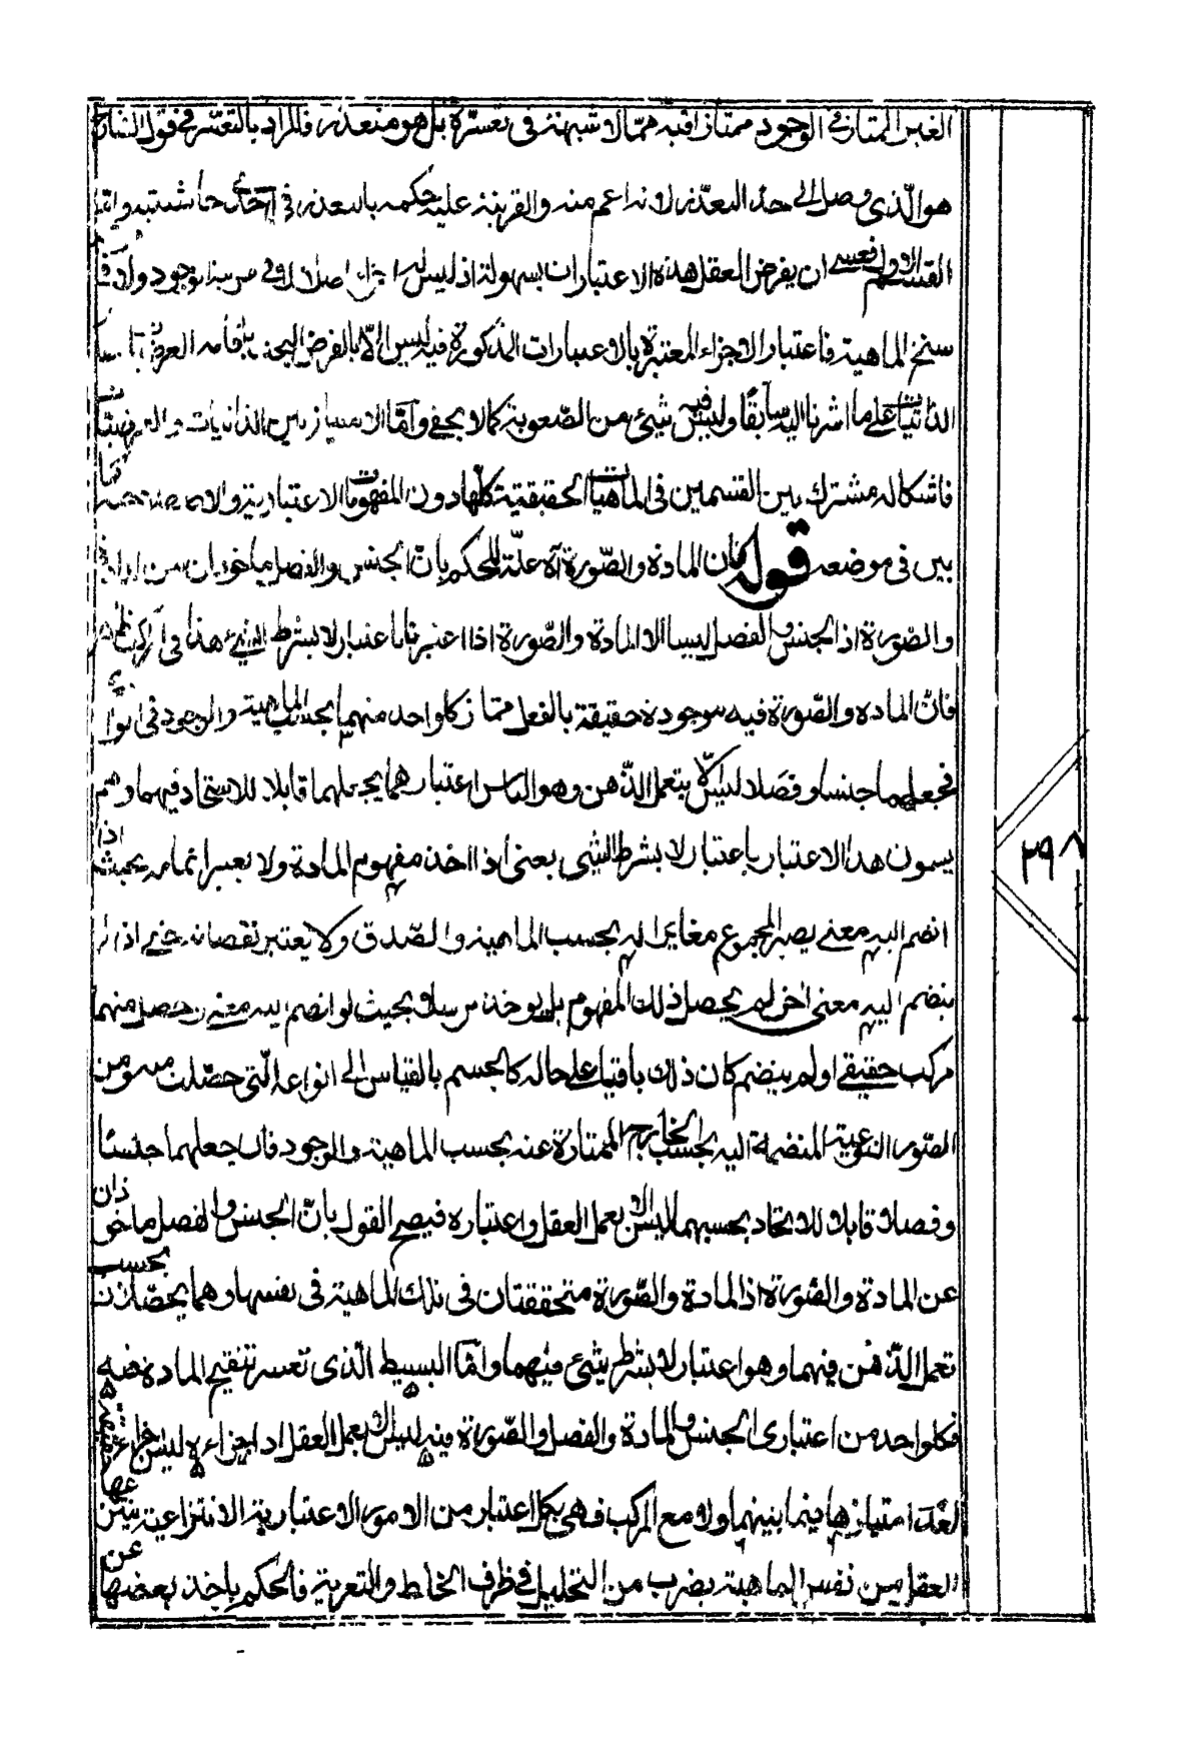 الغير الممتازة في الوجود ممتازا فيه مما لا شبهة في تعسره بل هو متعذر فالمراد بالتعسر في قول الشارح
هو الذي وصل الى حد التعذر لانه اعم منه والقرينة عليه حكمه بالتعذر في آخر حاشيته واما
القسم الاول فعسى ان يفرض العقل هذه الاعتبارات بسهولة اذ ليس له اجزاء اصلا لا في مرتبة الوجود ولا في
سنخ الماهية فاعتبار الاجزاء المعتبرة بالاعتبارات المذكورة فيه ليس الا بالفرض البحت باقامة العرضيات
الذاتيات على ما اشرنا اليه سابقا وليس فيه شيئ من الصعوبة كما لا يخفى واما الامتياز بين الذاتيات والعرضيات
فاشكاله مشترك بين القسمين في الماهيات الحقيقية كلها دون المفهومات الاعتبارية والاصطلاحية كما
بين في موضعه قوله فان المادة والصورة آه علة للحكم بان الجنس والفصل ماخوذان من المادة
والصورة اذ الجنس والفصل ليسا الا المادة والصورة اذا اعتبرتا باعتبار لا بشرط الشيئ هذا في المركب ظاهر
فان المادة والصورة فيه موجودة حقيقة بالفعل ممتاز كل واحد منهما بحسب الماهية والوجود في
فجعلهما جنسا وفصلا ليس الا بتعمل الذهن وهو الباس اعتبارهما يجعلهما قابلا للاتحاد فيهما وهم
يسمون هذا الاعتبار باعتبار لا بشرط الشيئ يعنى اذا اخذ مفهوم المادة ولا يعتبر تمامه بحيث اذا
انضم اليه معنى يصير المجموع مغايرا له بحسب الماهية والصدق ولا يعتبر نقصانه حتى اذا لم
ينضم اليه معنى اخر لم يحصل ذلك المفهوم بل يوخذ مرسلا بحيث لو انضم اليه معنى حصل منهما
مركب حقيقي اولم ينضم كان ذلك باقيا على حاله كالجسم بالقياس الى انواعه التي حصلت منه ومن
الصور النوعية المنضمة اليه بحسب الخارج الممتازة عنه بحسب الماهية والوجود فان جعلهما جنسا
وفصلا قابلا للاتحاد بحسبهما ليس الا بعمل العقل واعتباره فيصح القول بان الجنس والفصل ماخوذان
عن المادة والصورة اذ المادة والصورة متحققتان في تلك الماهية في نفسها وهما يحصلان بحسب
تعمل الذهن فيهما وهو اعتبار لا بشرط شيئ فيهما واما البسيط الذى تعسر تنقيح المادة فيه
فكل واحد من اعتبارى الجنس والمادة والفصل والصورة فيه ليس الا بعمل العقل اذ اجزاءه ليس اجزاء حقيقة
لعدم امتيازها فيما بينهما ولا مع المركب فهي بكل اعتبار من الامور الاعتبارية الانتزاعية ينتزعها
العقل من نفس الماهية بضرب من التحليل في ظرف الخلط والتعرية فالحكم باخذ بعضها عن
٢٩٨